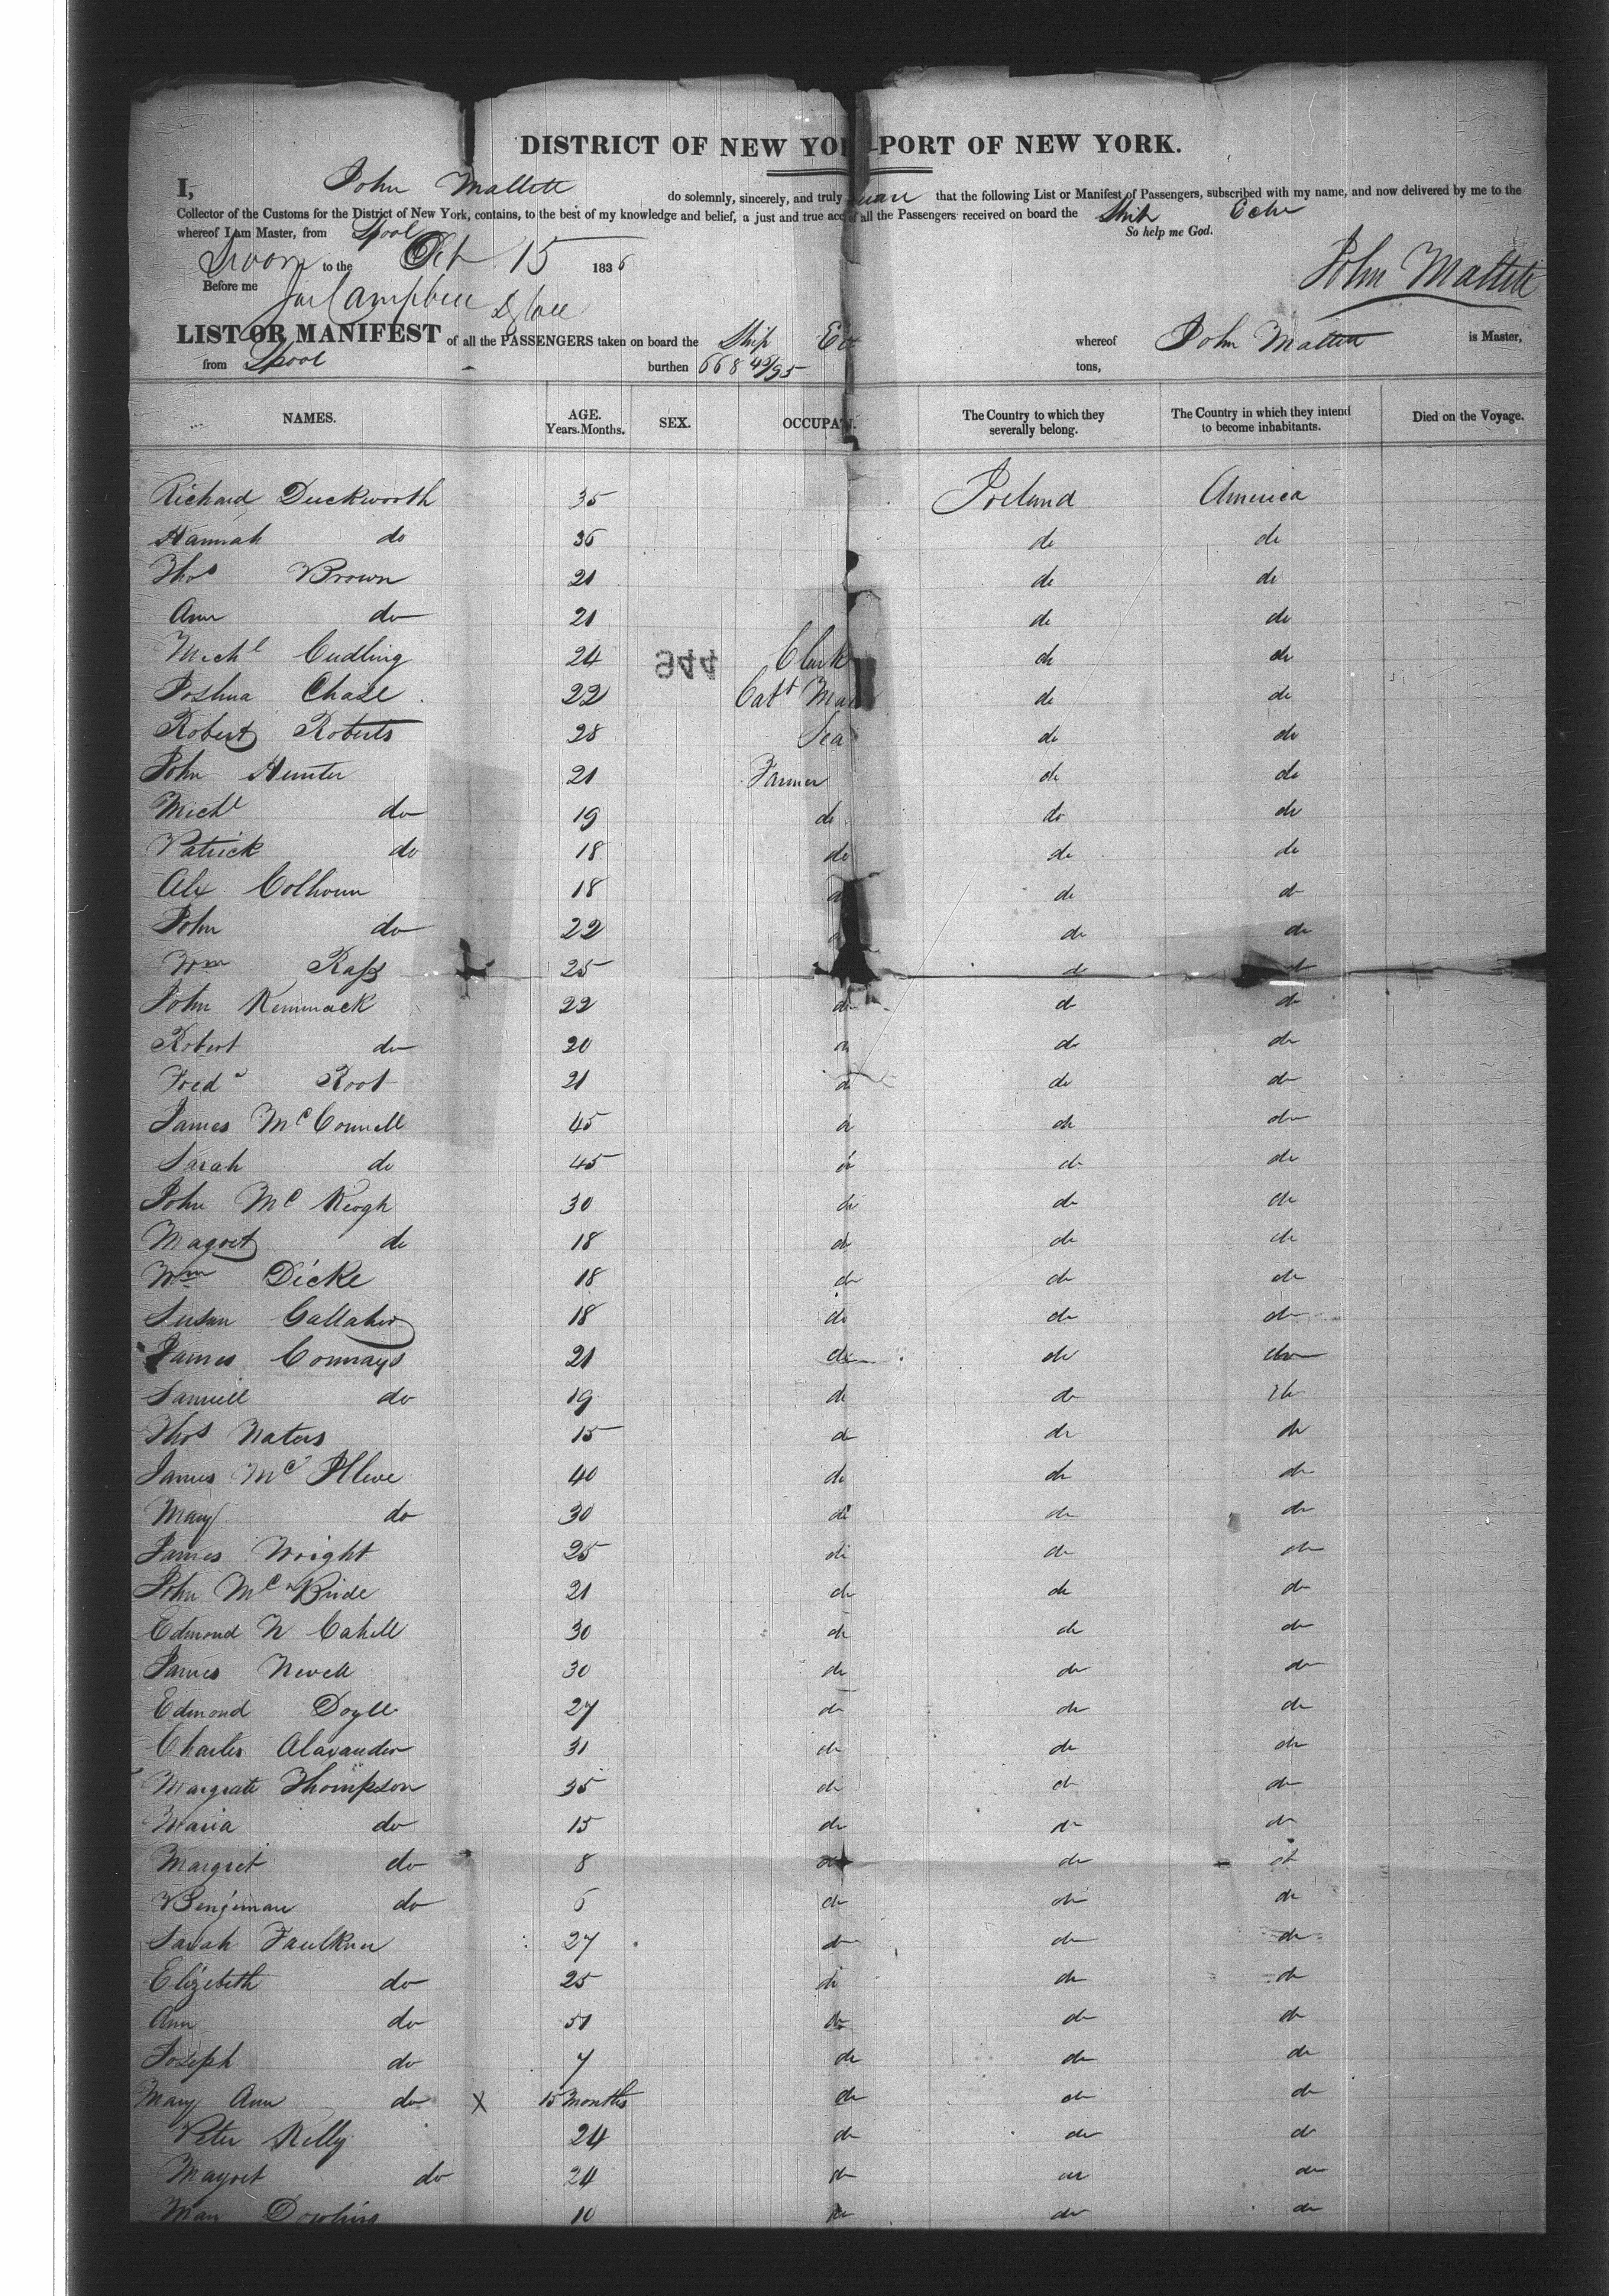 DISTRICT OF NEW YOR PORT OF NEW YORK.
I, John Mallett do solemnly, sincerely, and truly swear that the following List or Manifest of Passengers, subscribed with my name, and now delivered by me to the
Collector of the Customs for the District of New York, contains, to the best of my knowledge and belief, a just and true acc of all the Passengers received on board the Ship Echo
whereof I am Master, from Lpool So help me God.
Sworn to the Oct 15 1836
John Mallett
Before me Campbell
LIST OR MANIFEST of all the PASSENGERS taken on board the Ship Ec whereof John Mallett is Master,
from Lpool burthen 668 45/95 tons,
NAMES. AGE. Years. Months. SEX. OCCUPAT. The Country to which they severally belong. The Country in which they intend to become inhabitants. Died on the Voyage.
Richard Duckworth 35 Ireland America
Hannah do 36 do do
Thos Brown 21 do do
Ann do 21 do do
Michl Cudling 24 944 Clark do do
Joshua Chase 22 Cabt Mak do do
Robert Roberts 28 Sea do do
John Hunter 21 Farmer do do
Michl do 19 do do do
Patrick do 18 do do do
Alex Colhoun 18 do do
John do 22 do do
Wm Rass 25 do do
John Kemmack 22 do do do
Robert do 20 do do do
Fredk Root 21 do do do
James McConnell 45 do do do
Sarah do 45 do do do
John McKeogh 30 do do do
Magret do 18 do do do
Wm Dicke 18 do do do
Susan Callaher 18 do do do
James Conrays 21 do do do
Samuell do 19 do do do
Thos Waters 15 do do do
James McIlwe 40 do do do
Mary do 30 do do do
James Wright 25 do do do
John McBride 21 do do do
Edmond N Cahill 30 do do do
James Newell 30 do do do
Edmond Doyle 27 do do do
Charles Alaxander 31 do do do
Margrate Thompson 35 do do do
Maria do 15 do do do
Margret do 8 do do do
Benjiman do 6 do do do
Sarah Faulkner 27 do do do
Elizebeth do 25 do do do
Ann do 51 do do do
Joseph do 7 do do do
Mary Ann do X 15 months do do do
Peter Kelly 24 do do do
Magret do 24 do do do
Mary Dowling 10 do do do